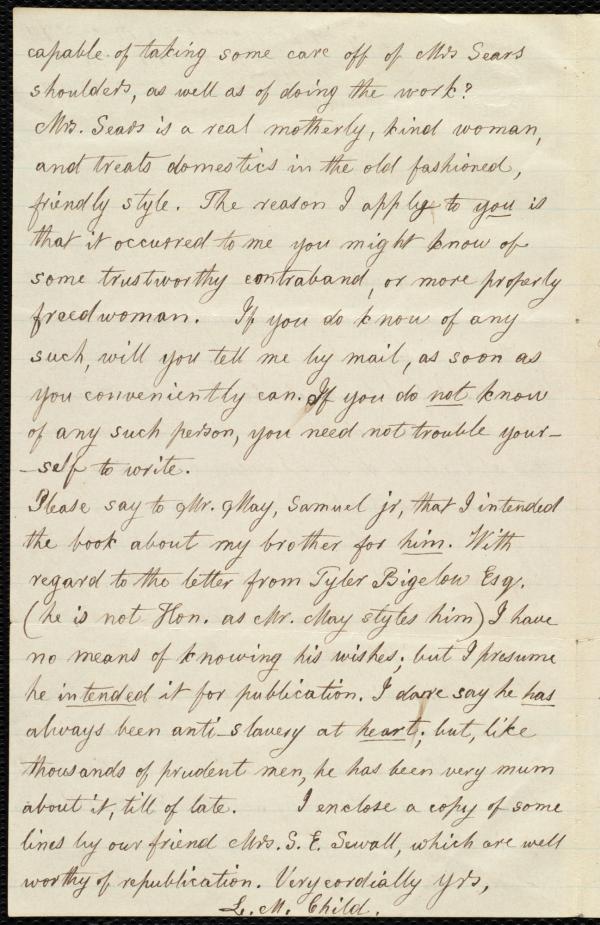 capable of taking some care off of Mrs Sears
shoulders, as well as of doing the work?
Mrs. Sears is a real motherly, kind woman,
and treats domestics in the old fashioned,
friendly style. The reason I apply to you is
that it occurred to me you might know of
some trustworthy contraband, or more properly
freedwoman. If you do know of any
such, will you tell me by mail, as soon as
you conveniently can. If you do not know
of any such person, you need not trouble your-
-self to write.
Please say to Mr. May, Samuel jr, that I intended
the book about my brother for him. With
regard to the letter from Tyler Bigelow Esq.
(he is not Hon. as Mr. May styles him) I have
no means of knowing his wishes; but I presume
he intended it for publication. I dare say he has
always been anti-slavery at heart; but, like
thousands of prudent men, he has been very mum
about it, till of late. I enclose a copy of some
lines by our friend Mrs. S. E. Sewall, which are well
worthy of republication. Very cordially yrs,
L. M. Child.